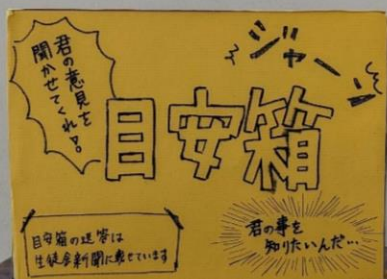 君の意見を
聞かせてくれ!!
ジャーン
目安箱
目安箱の返答は
生徒会新聞に載せています
君の事を
知りたいんだ…